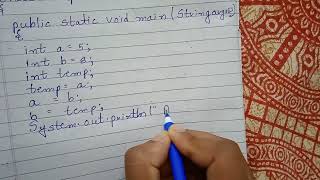 public static void main(String args[])
{
int a = 5;
int b = 8;
int temp;
temp = a;
a = b;
b = temp;
System.out.println("